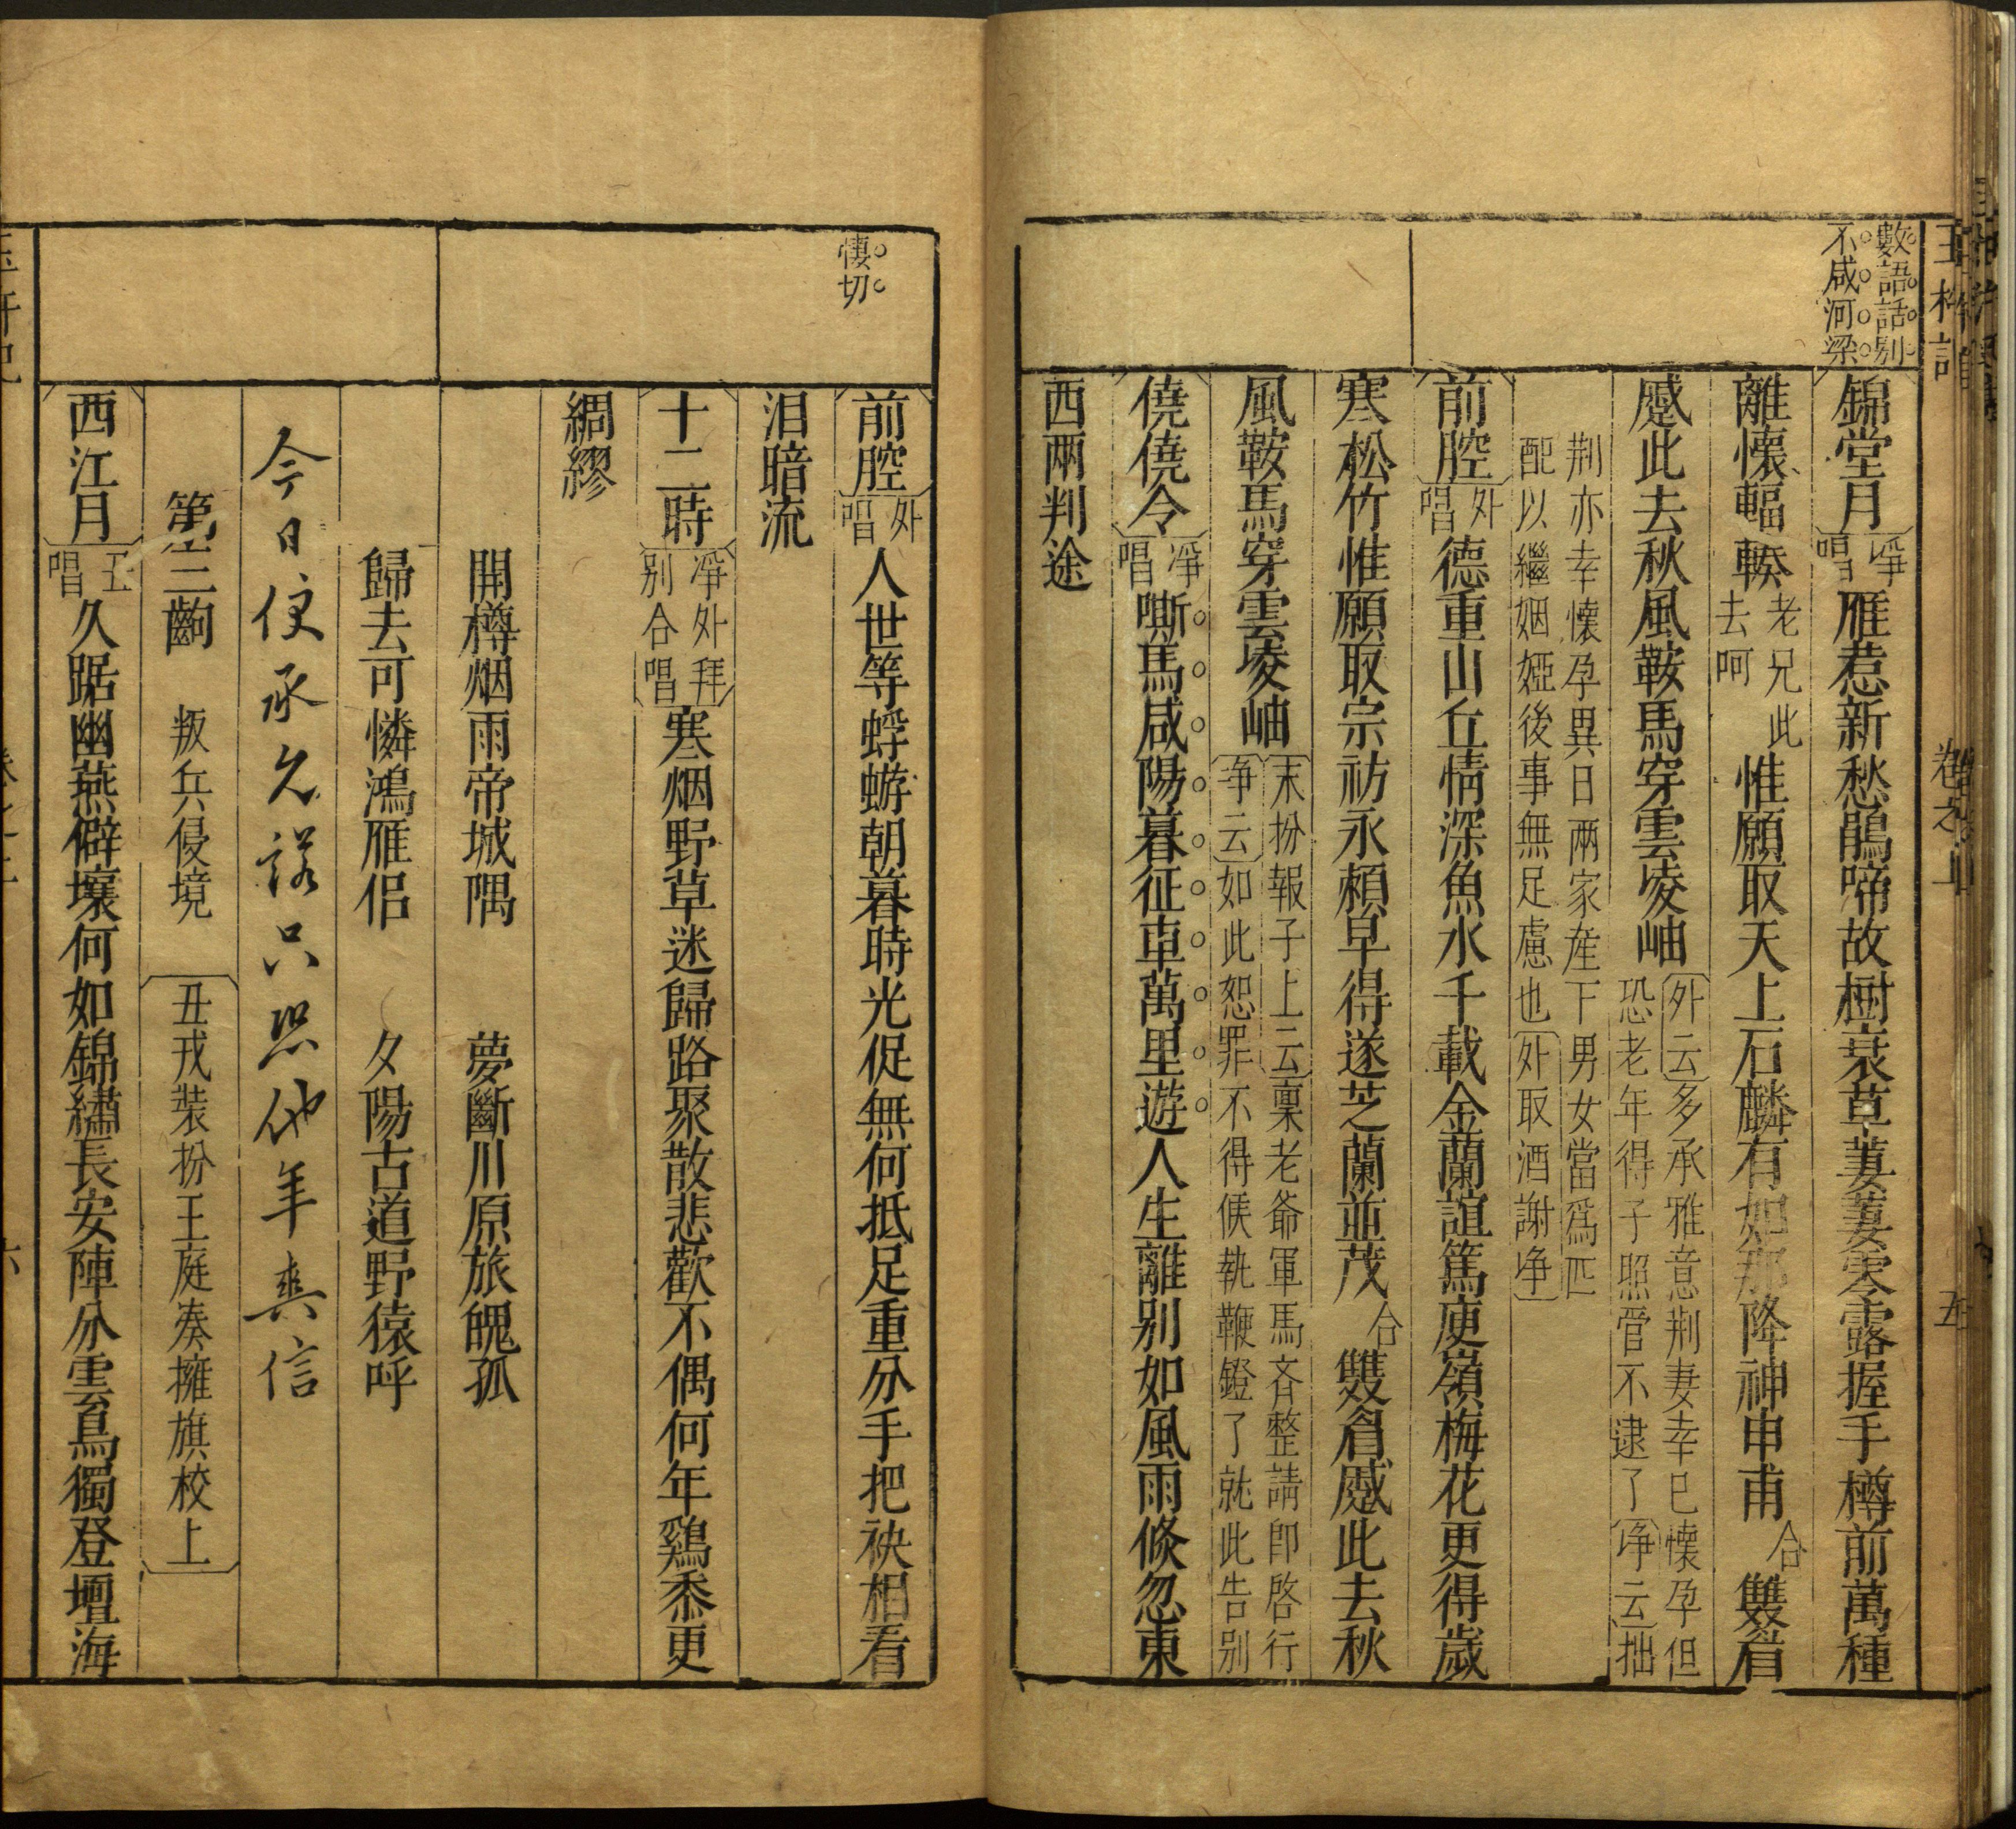 數語話別
不咸河梁
錦堂月淨唱雁惹新愁鵑啼故樹衰草萋萋零露握手樽前萬種
離懷輻輳老兄此去呵惟願取天上石麟有如那降神申甫合雙眉
蹙此去秋風鞍馬穿雲凌岫外云多承雅意荆妻幸巳懷孕但恐老年得子照管不逮了净云拙
荆亦幸懷孕異日兩家産下男女當爲匹配以繼姻婭後事無足慮也外取酒謝净
前腔外唱德重山丘情深魚水千載金蘭誼篤庾嶺梅花更得歲
寒松竹惟願取宗祊永賴早得遂芝蘭並茂合雙眉蹙此去秋
風鞍馬穿雲凌岫末扮報子上云稟老爺軍馬斉整請卽啓行净云如此恕罪不得候執鞭鐙了就此告别
僥僥令淨唱嘶馬咸陽暮征車萬里遊人生離别如風雨倐忽東
西兩判途
悽切
前腔外唱人世等蜉蝣朝暮時光促無何抵足重分手把袂相看
泪暗流
十二時淨外拜别合唱寒烟野草迷歸路聚散悲歡不偶何年鷄黍更
綢繆
開樽烟雨帝城隅　夢斷川原旅魄孤
歸去可憐鴻雁侣　夕陽古道野猿呼
今日便承久諾只恐他年爽信
第三齣　叛兵侵境　丑戎裝扮王庭凑擁旗校上
西江月丑唱久踞幽燕僻壤何如錦繡長安陣分雲鳥獨登壇海